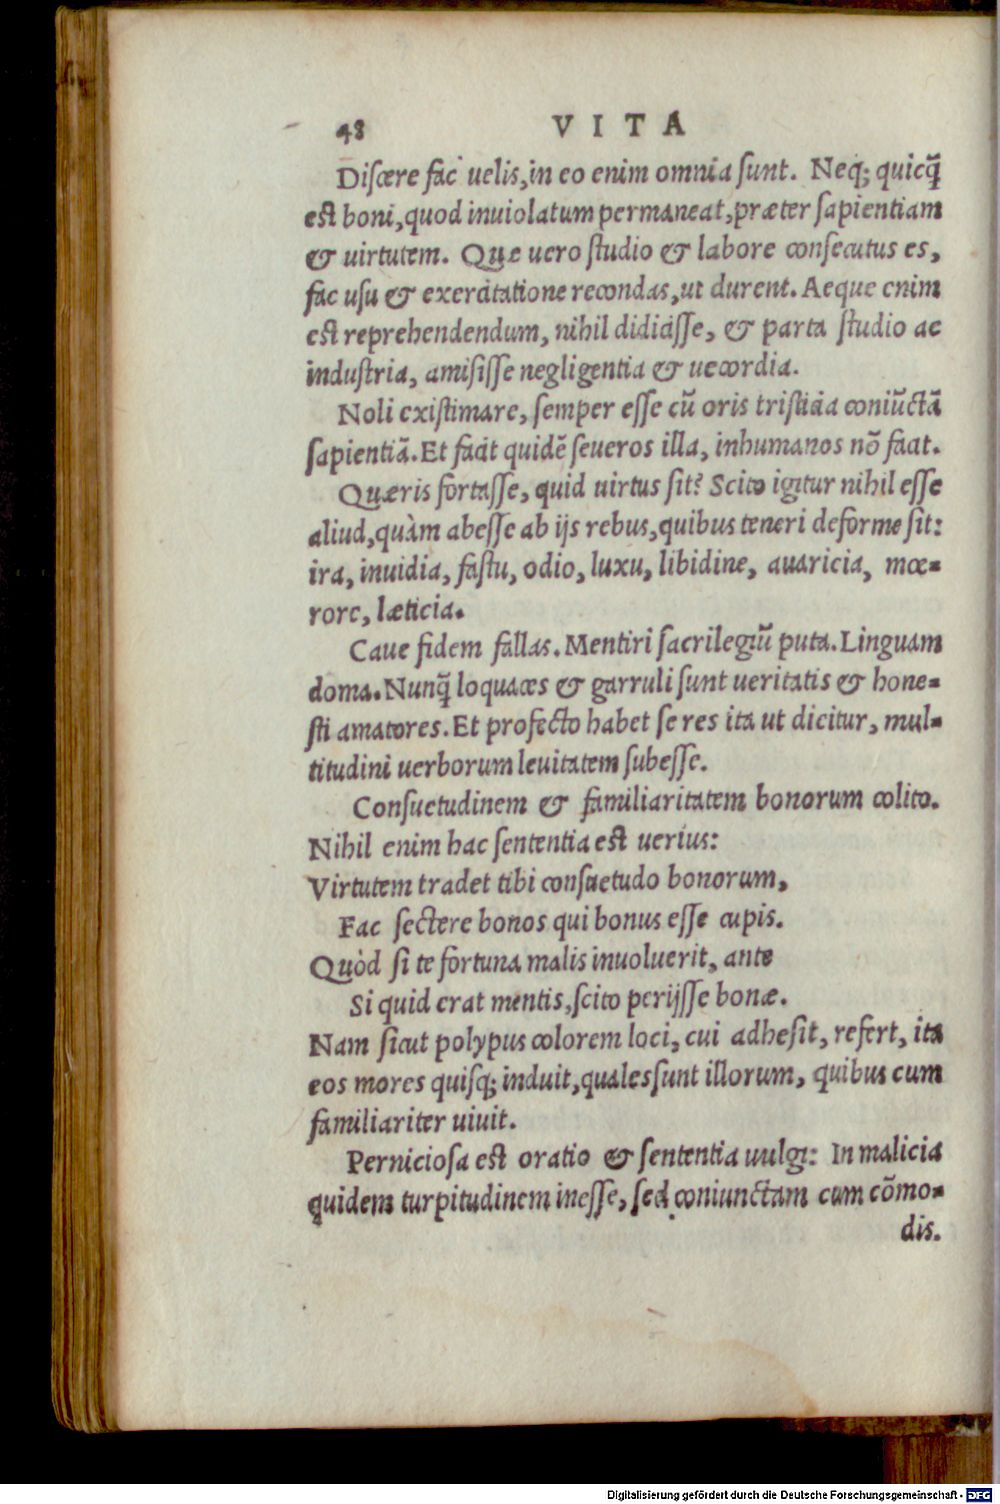 48 VITA
Discere fac uelis, in eo enim omnia sunt. Neq; quicq̃
est boni, quod inuiolatum permaneat, præter sapientiam
& uirtutem. Quę uero studio & labore consecutus es,
fac usu & exercitatione recondas, ut durent. Aeque enim
est reprehendendum, nihil didicisse, & parta studio ac
industria, amisisse negligentia & uecordia.
Noli existimare, semper esse cũ oris tristicia coniũctã
sapientiã. Et facit quidẽ seueros illa, inhumanos nõ facit.
Quæris fortasse, quid uirtus sit? Scito igitur nihil esse
aliud, quàm abesse ab ijs rebus, quibus teneri deforme sit:
ira, inuidia, fastu, odio, luxu, libidine, auaricia, mœ-
rore, læticia.
Caue fidem fallas. Mentiri sacrilegiũ puta. Linguam
doma. Nunq̃ loquaces & garruli sunt ueritatis & hone-
sti amatores. Et profecto habet se res ita ut dicitur, mul-
titudini uerborum leuitatem subesse.
Consuetudinem & familiaritatem bonorum colito.
Nihil enim hac sententia est uerius:
Virtutem tradet tibi consuetudo bonorum,
Fac sectere bonos qui bonus esse cupis.
Quòd si te fortuna malis inuoluerit, ante
Si quid erat mentis, scito perijsse bonæ.
Nam sicut polypus colorem loci, cui adhesit, refert, ita
eos mores quisq; induit, quales sunt illorum, quibus cum
familiariter uiuit.
Perniciosa est oratio & sententia uulgi: In malicia
quidem turpitudinem inesse, sed coniunctam cum cõmo-
dis.
Digitalisierung gefördert durch die Deutsche Forschungsgemeinschaft - DFG